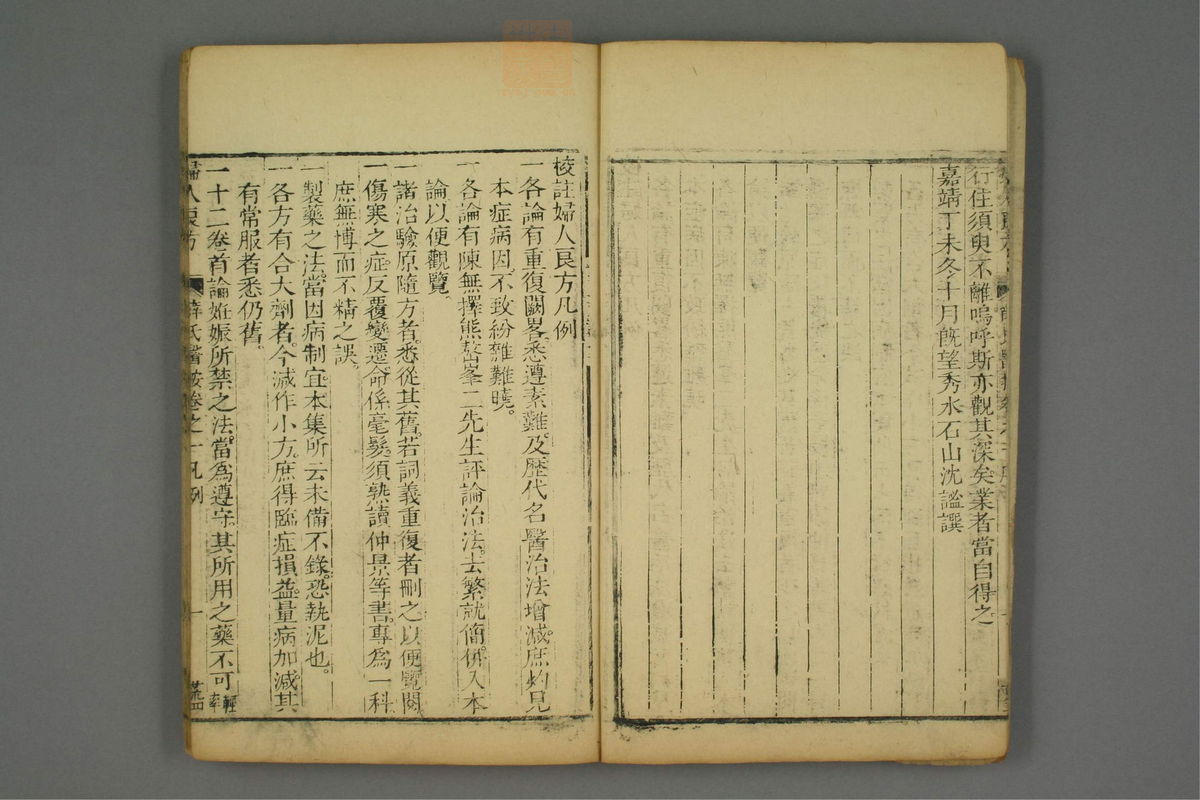 行住須臾不離嗚呼斯亦觀其深矣業者當自得之
嘉靖丁未冬十月旣望秀水石山沈謐譔
校註婦人良方凡例
一各論有重復闕畧悉遵素難及歷代名醫治法增減庶灼見
本症病因不致紛雜難曉。
一各論有陳無擇熊鼇峯二先生評論治法去繁就簡併入本
論以便觀覽
一諸治驗原隨方者悉從其舊若詞義重復者刪之以便覽閱
一傷寒之症反覆變遷命係毫髮須熟讀仲景等書專爲一科
庶無博而不精之誤。
一製藥之法當因病制宜本集所云未備不錄恐執泥也。
一各方有合大劑者今減作小方庶得臨症損益量病加減其
有常服者悉仍舊。
一十二卷首論姙娠所禁之法當爲遵守其所用之藥不可輕率
婦人良方 薛氏醫按卷之一凡例 一